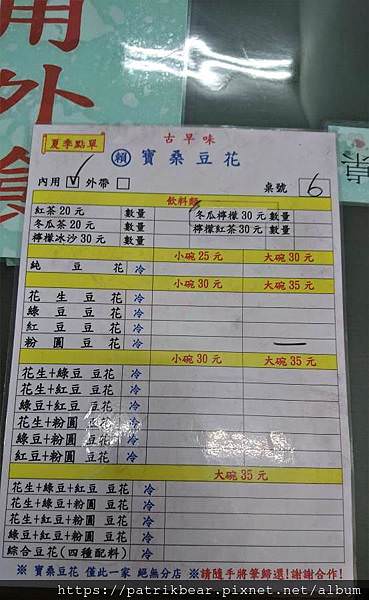 用外食
夏季點單
古早味
賴 寶桑豆花
內用 ✓ 外帶 桌號 6
飲料類
紅茶20元 數量 冬瓜檸檬30元 數量
冬瓜茶20元 數量 檸檬紅茶30元 數量
檸檬冰沙30元 數量
小碗25元 大碗30元
純豆花 冷
小碗30元 大碗35元
花生豆花 冷
綠豆豆花 冷
紅豆豆花 冷
粉圓豆花 冷 一
小碗30元 大碗35元
花生+綠豆 豆花 冷
花生+紅豆 豆花 冷
綠豆+紅豆 豆花 冷
花生+粉圓 豆花 冷
綠豆+粉圓 豆花 冷
紅豆+粉圓 豆花 冷
大碗35元
花生+綠豆+紅豆 豆花 冷
花生+綠豆+粉圓 豆花 冷
花生+紅豆+粉圓 豆花 冷
綠豆+紅豆+粉圓 豆花 冷
綜合豆花(四種配料) 冷
※ 寶桑豆花 僅此一家 絕無分店 ※請隨手將筆歸還!謝謝合作!
https://patrikbear.pixnet.net/album